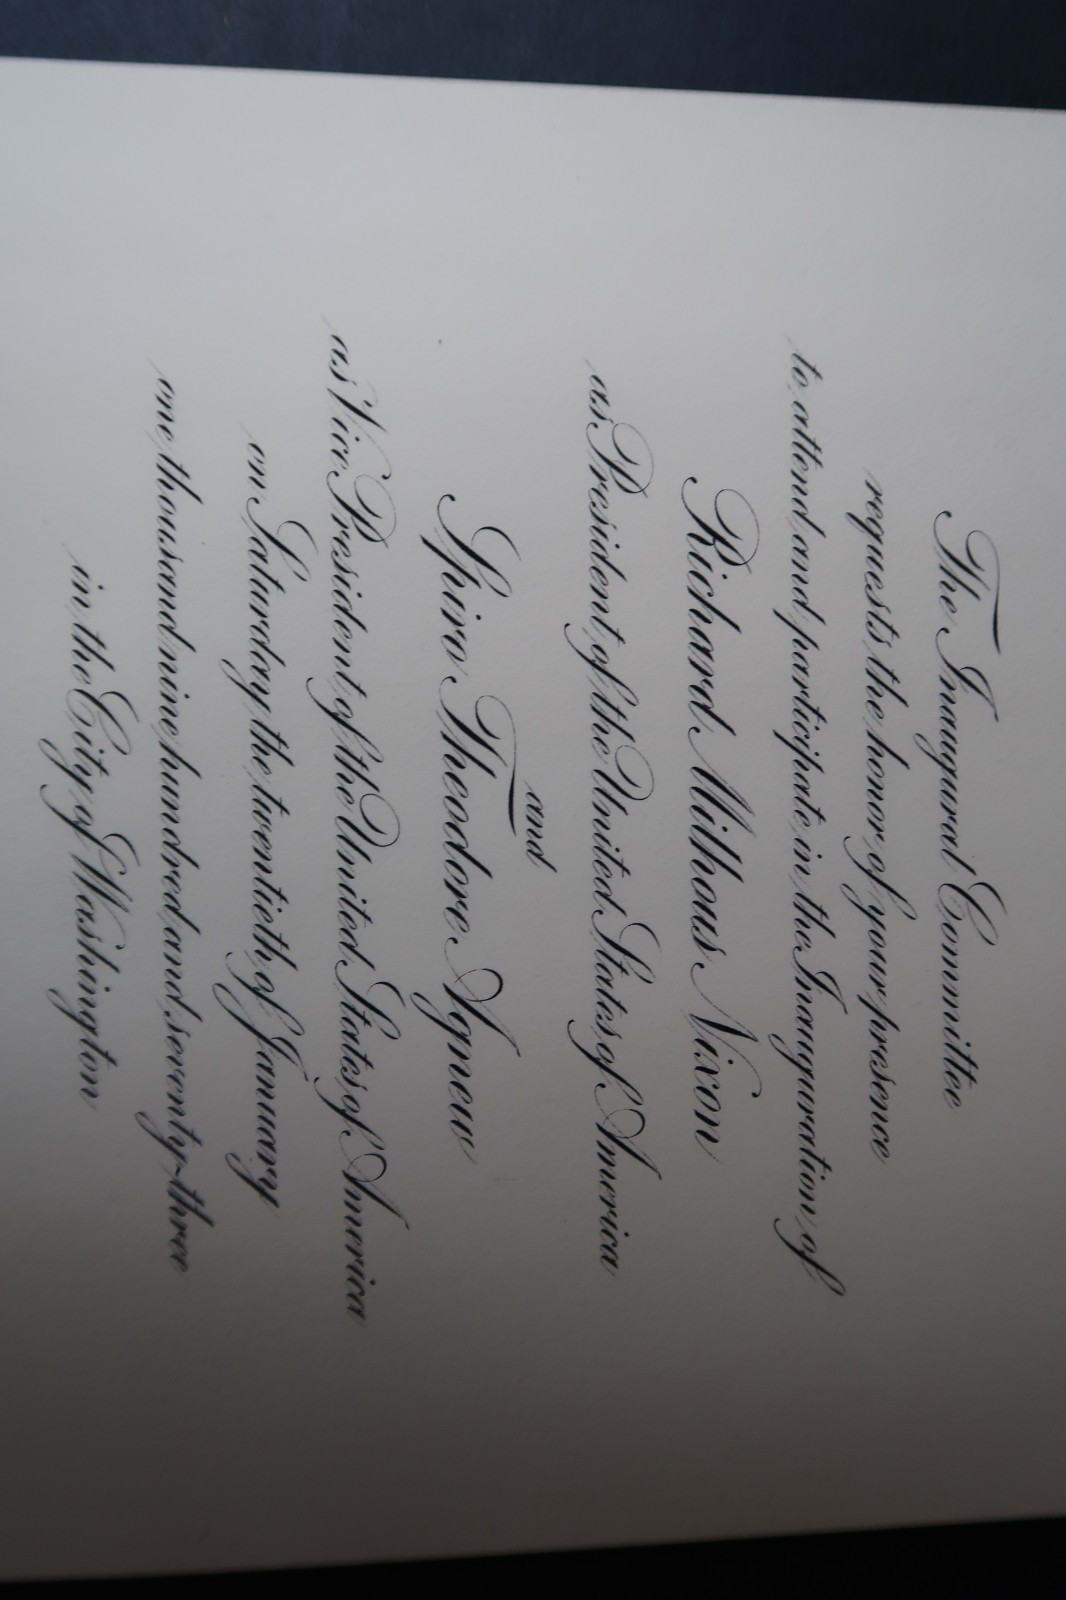 The Inaugural Committee
requests the honor of your presence
to attend and participate in the Inauguration of
Richard Milhous Nixon
as President of the United States of America
and
Spiro Theodore Agnew
as Vice President of the United States of America
on Saturday the twentieth of January
one thousand nine hundred and seventy-three
in the City of Washington